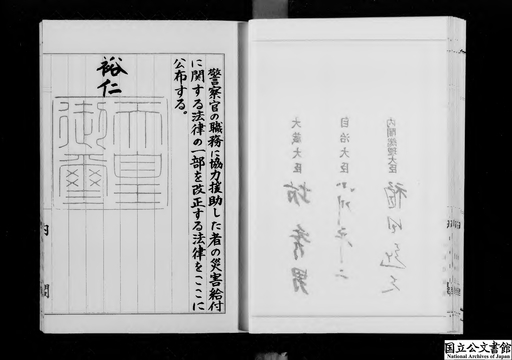 警察官の職務に協力援助した者の災害給付
に関する法律の一部を改正する法律をここに
公布する。
裕仁
天皇
御璽
内閣総理大臣 福田赳夫
自治大臣 小川平二
大蔵大臣 坊秀男
国立公文書館
National Archives of Japan